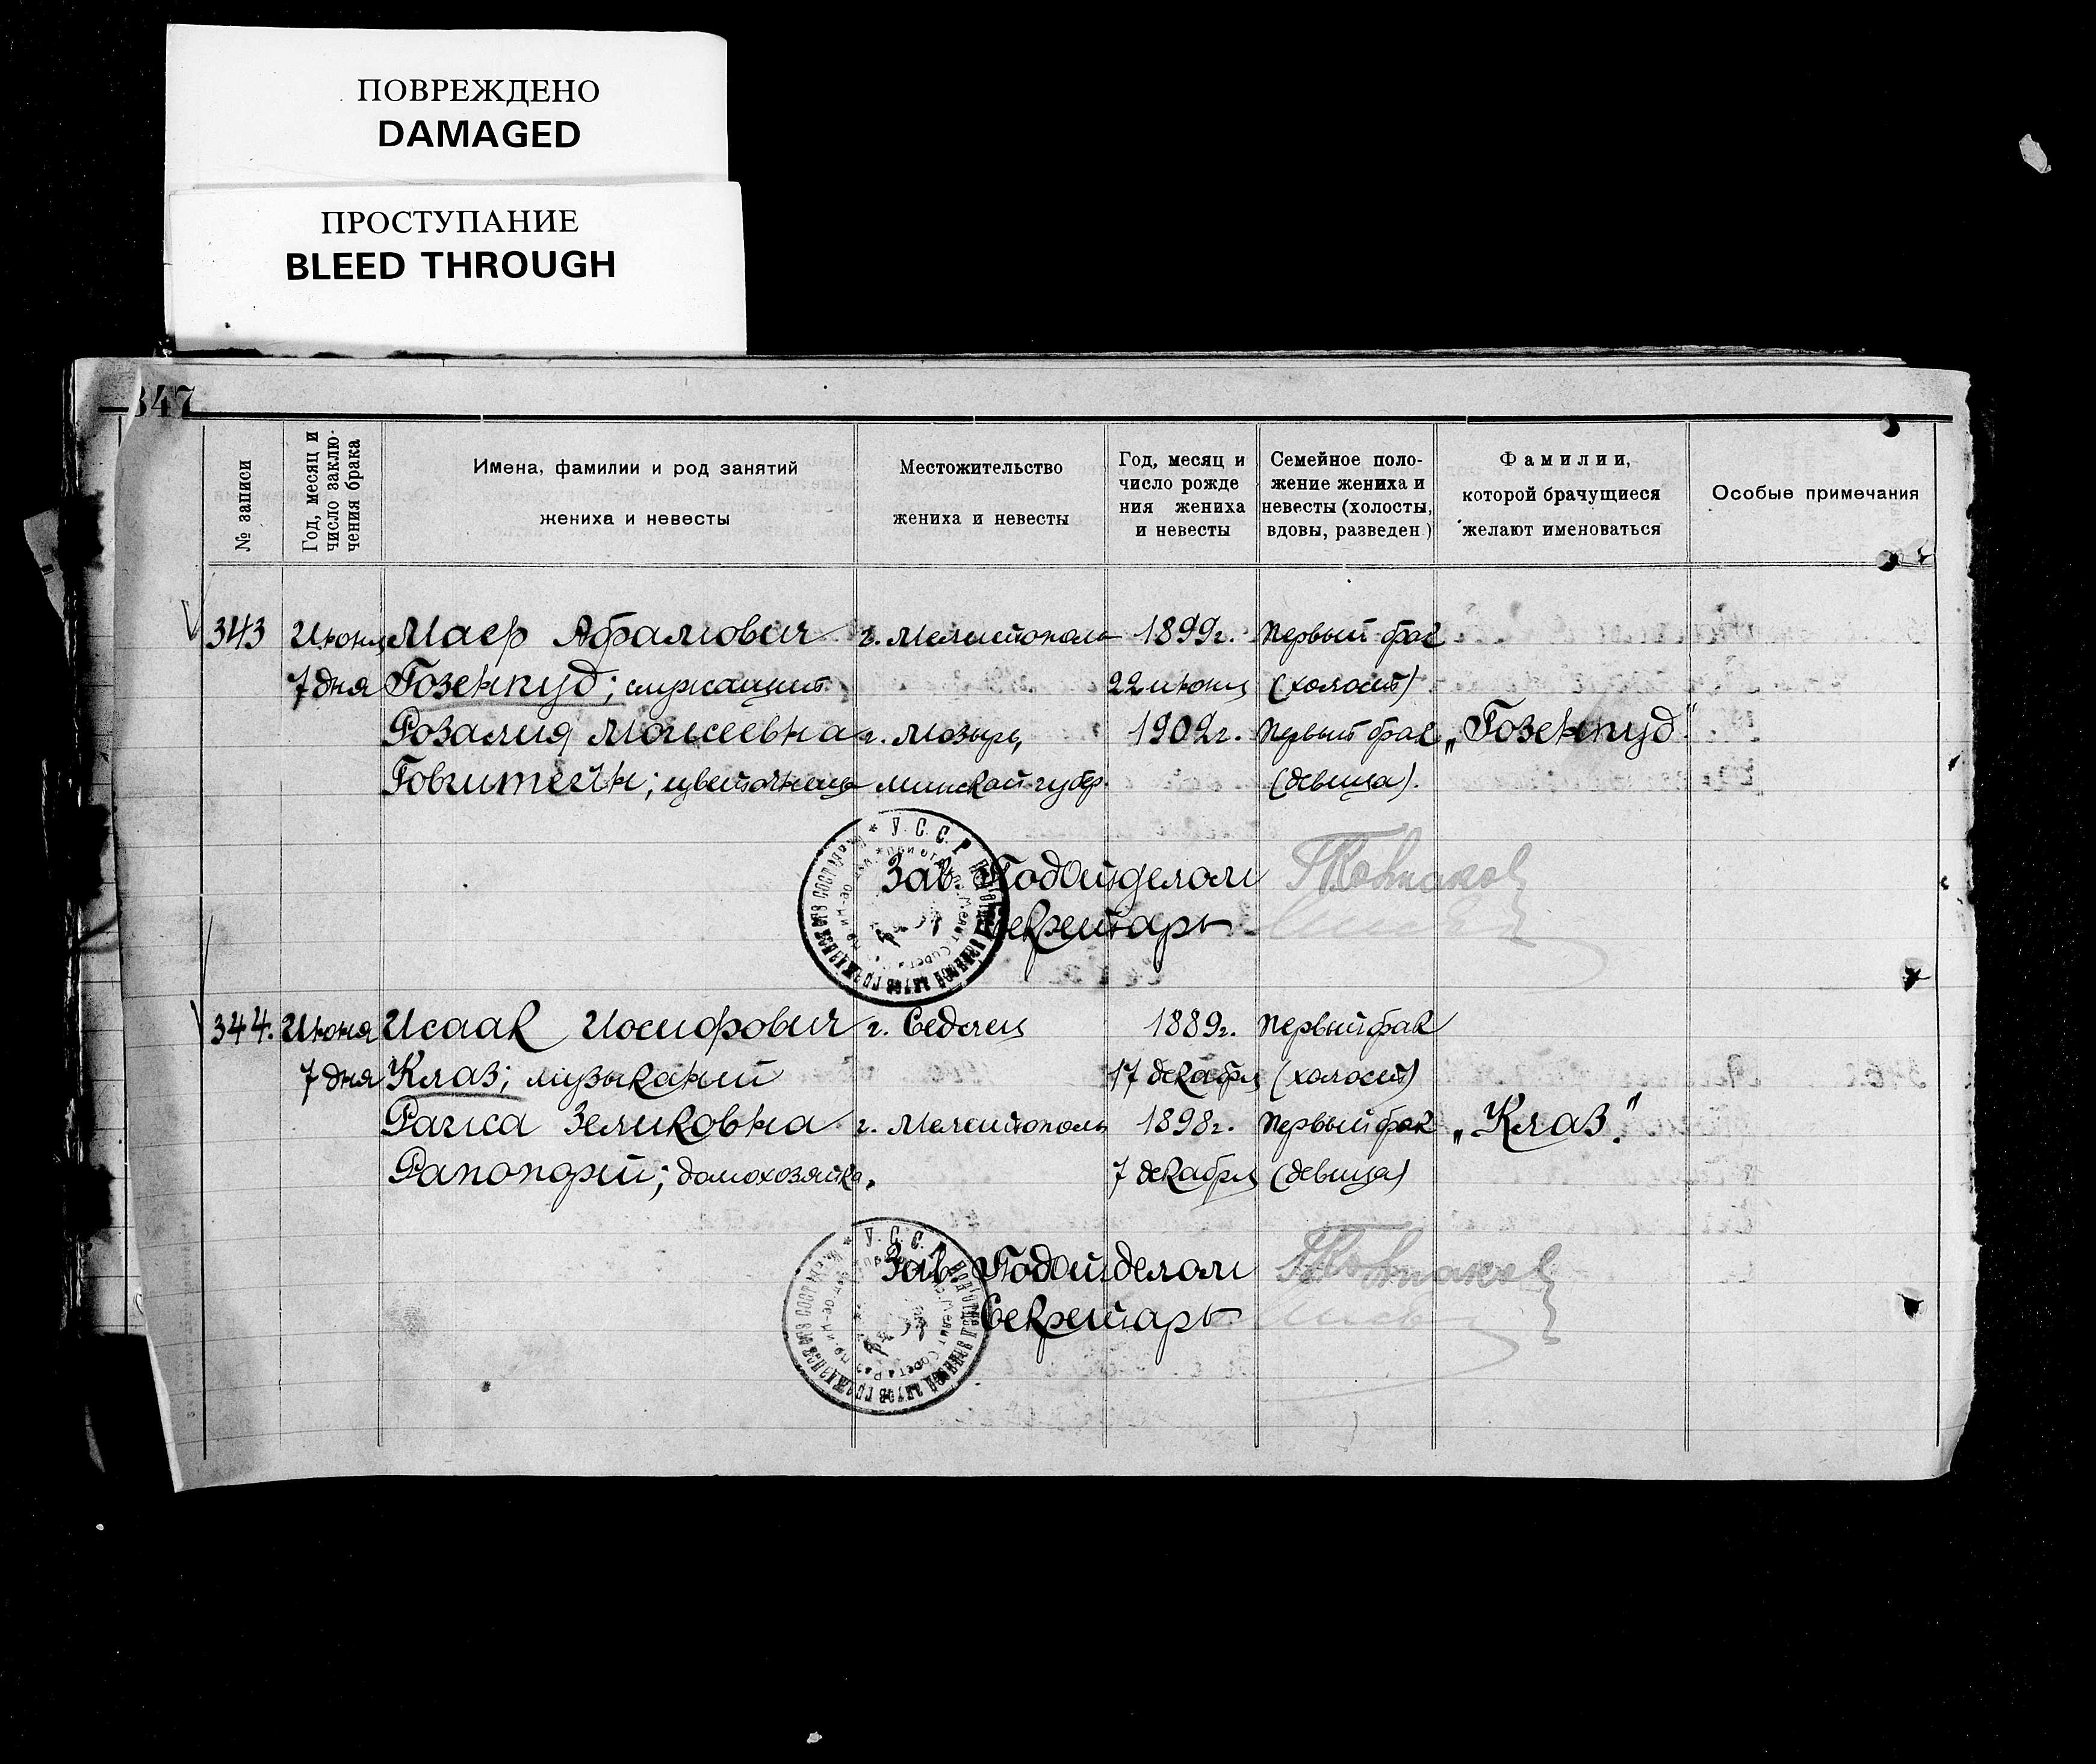 ПОВРЕЖДЕНО
DAMAGED
ПРОСТУПАНИЕ
BLEED THROUGH
347
№ записи
Год, месяц и
число заклю-
чения брака
Имена, фамилии и род занятий
жениха и невесты
Местожительство
жениха и невесты
Год, месяц и
число рожде
ния жениха
и невесты
Семейное поло-
жение жениха и
невесты (холосты,
вдовы, разведен)
Фамилии,
которой брачущиеся
желают именоваться
Особые примечания
343 Июня Маер Абрамович г. Мелитополь 1899г. Первый брак
7 дня Гозенпуд; служащий. 22 июня (холост)
Розалия Моисеевна г. Мозырь, 1902г. Первый брак „Гозенпуд"
цветочница Минской губер. (девица).
Зав. Подотделом
Секретарь
344. Июня Исаак Иосифович г. Седлец 1889г. Первый брак
7 дня Клаз; музыкант 17 декабря (холост)
Раиса Зеликовна г. Мелитополь 1898г. Первый брак „Клаз."
Рапопорт; домохозяйка. 7 декабря (девица)
Зав. Подотделом
Секретарь
У.С.С.Р
У.С.С.Р